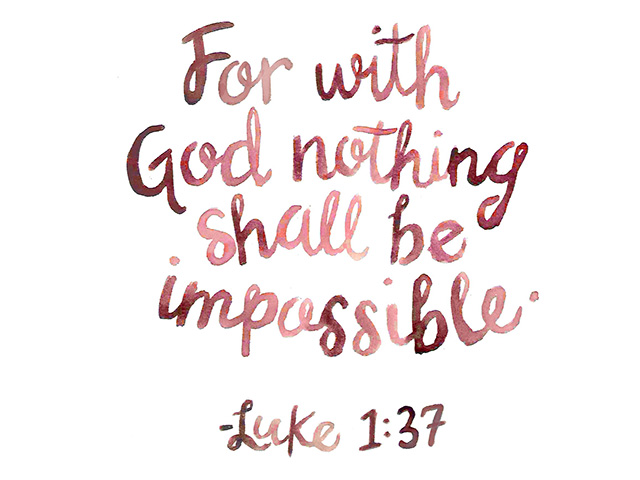 For with
God nothing
shall be
impossible.
-Luke 1:37